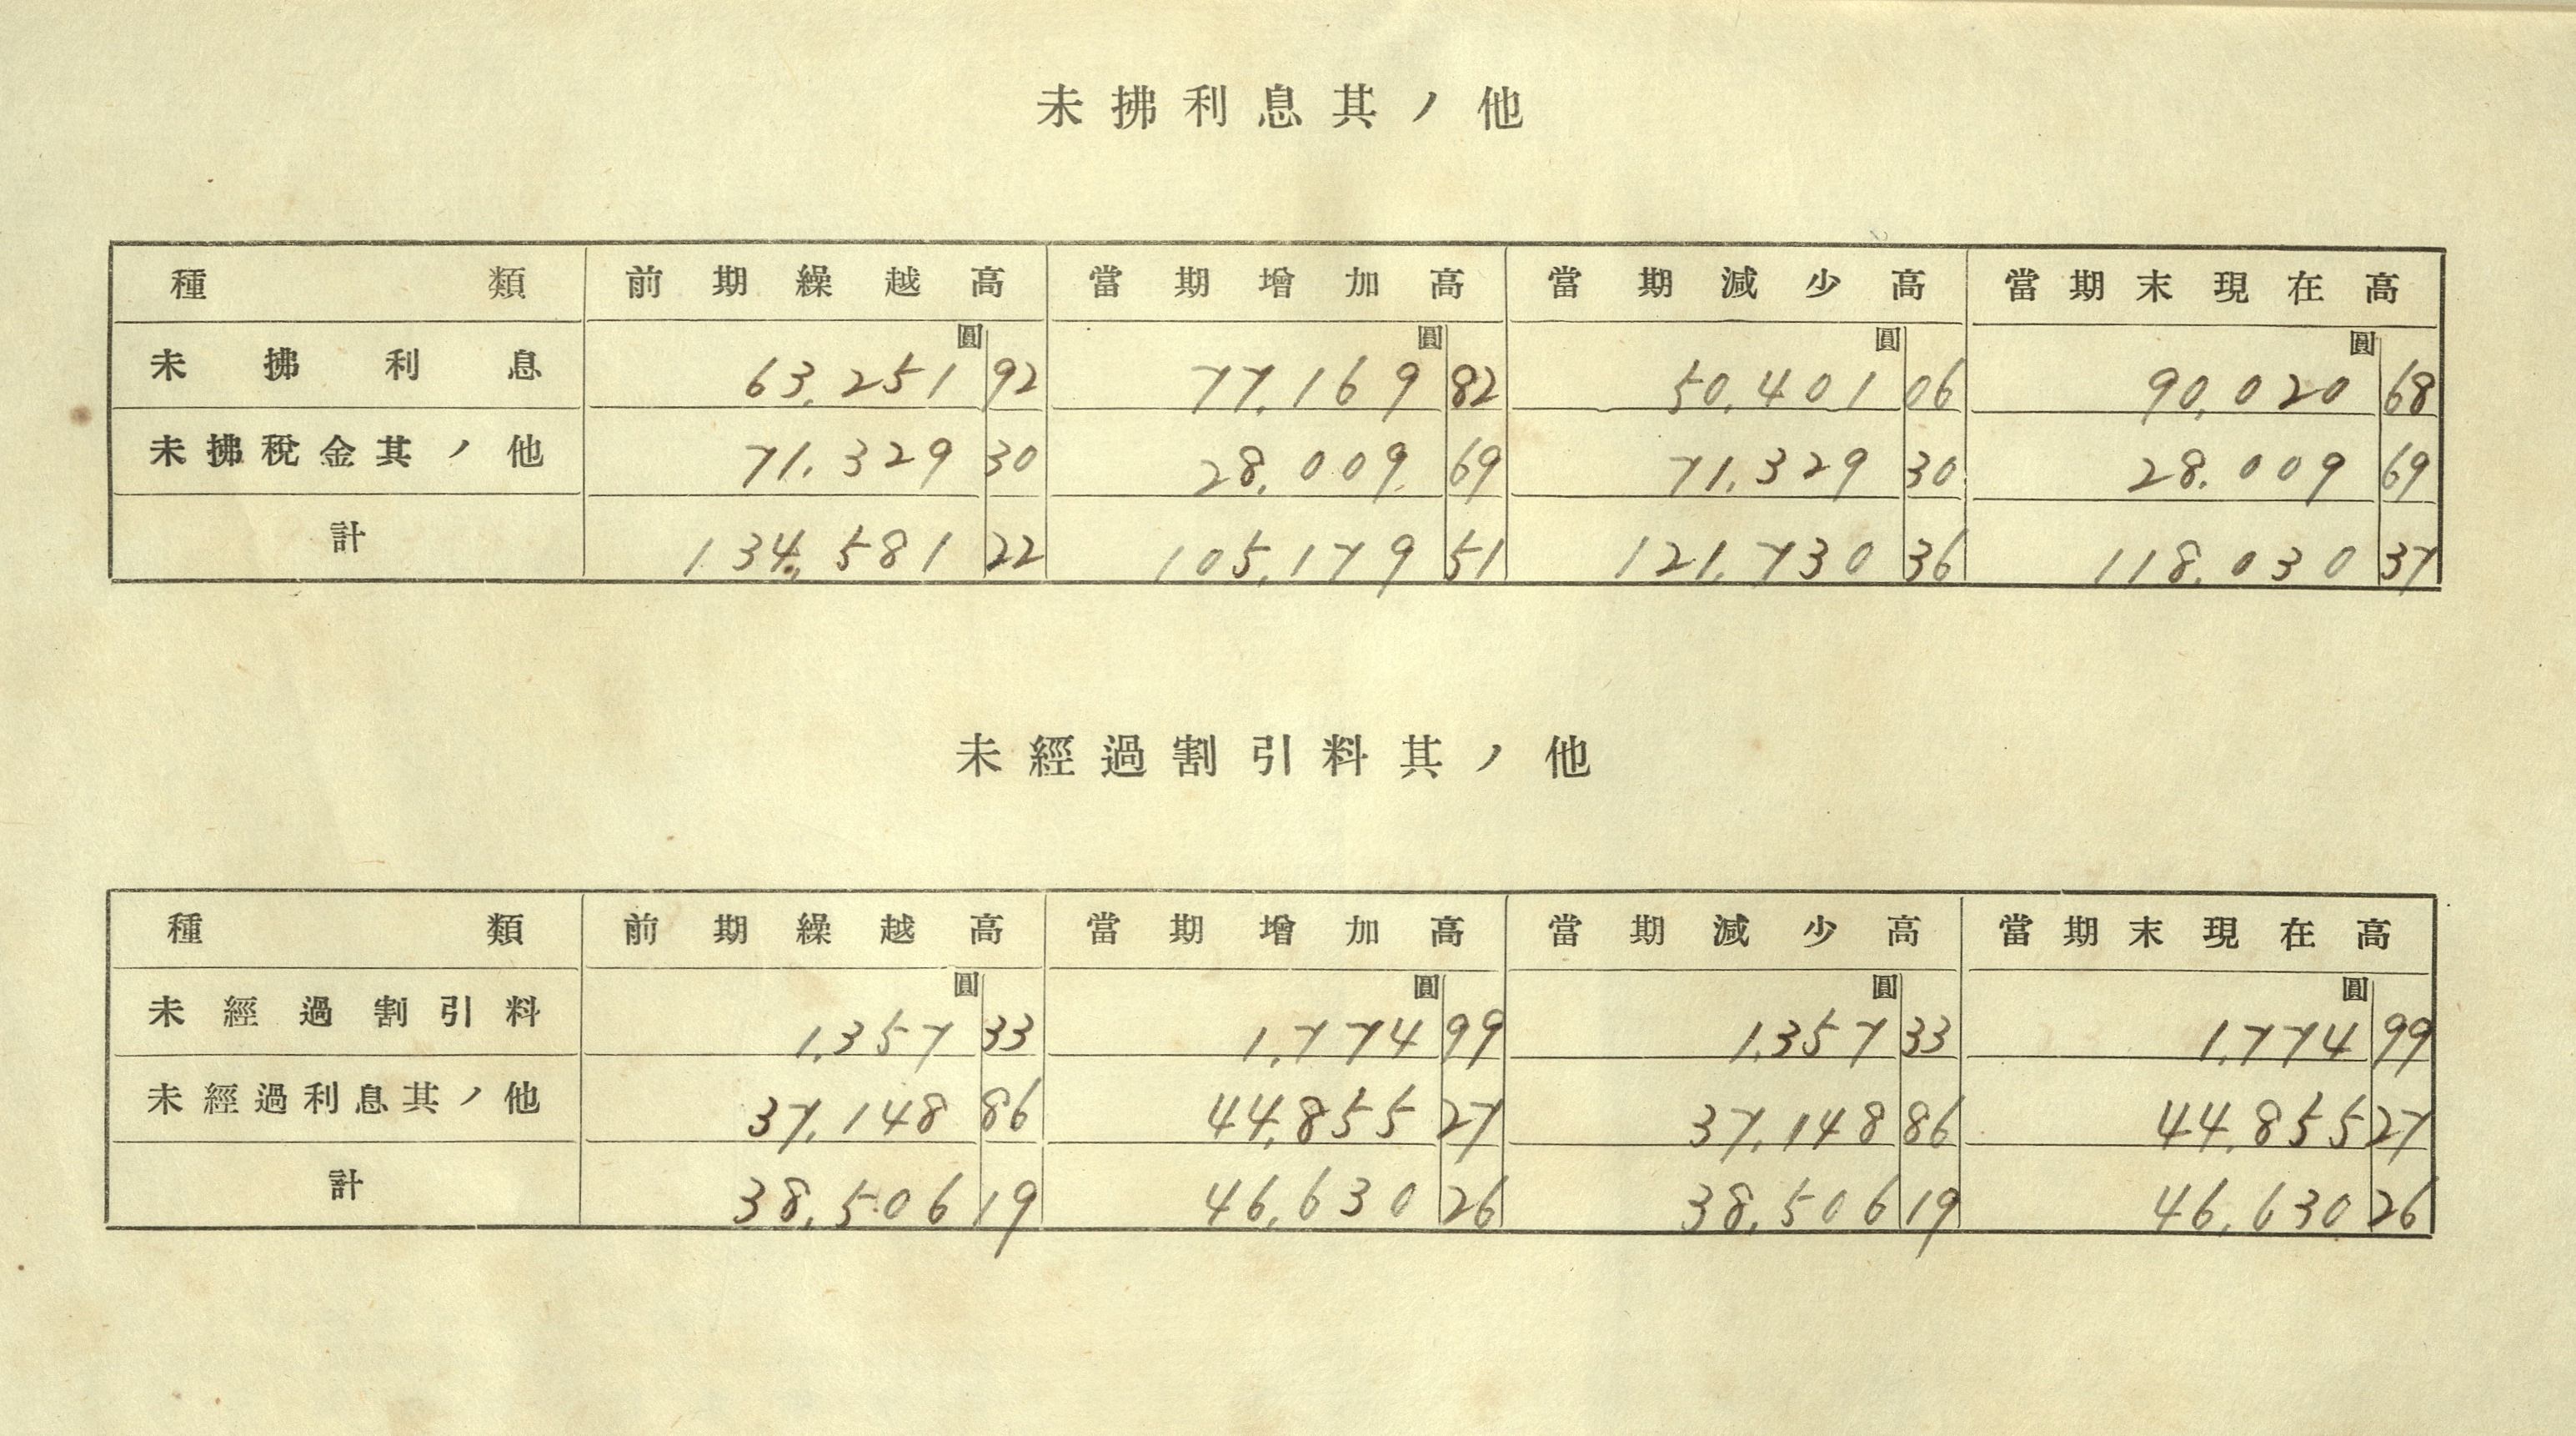 未拂利息其ノ他
種類 前期繰越高 當期增加高 當期減少高 當期末現在高
圓 圓 圓 圓
未拂利息 63,251 92 77,169 82 50,401 06 90,020 68
未拂稅金其ノ他 71,329 30 28,009 69 71,329 30 28,009 69
計 134,581 22 105,179 51 121,730 36 118,030 37
未經過割引料其ノ他
種類 前期繰越高 當期增加高 當期減少高 當期末現在高
圓 圓 圓 圓
未經過割引料 1,357 33 1,774 99 1,357 33 1,774 99
未經過利息其ノ他 37,148 86 44,855 27 37,148 86 44,855 27
計 38,506 19 46,630 26 38,506 19 46,630 26